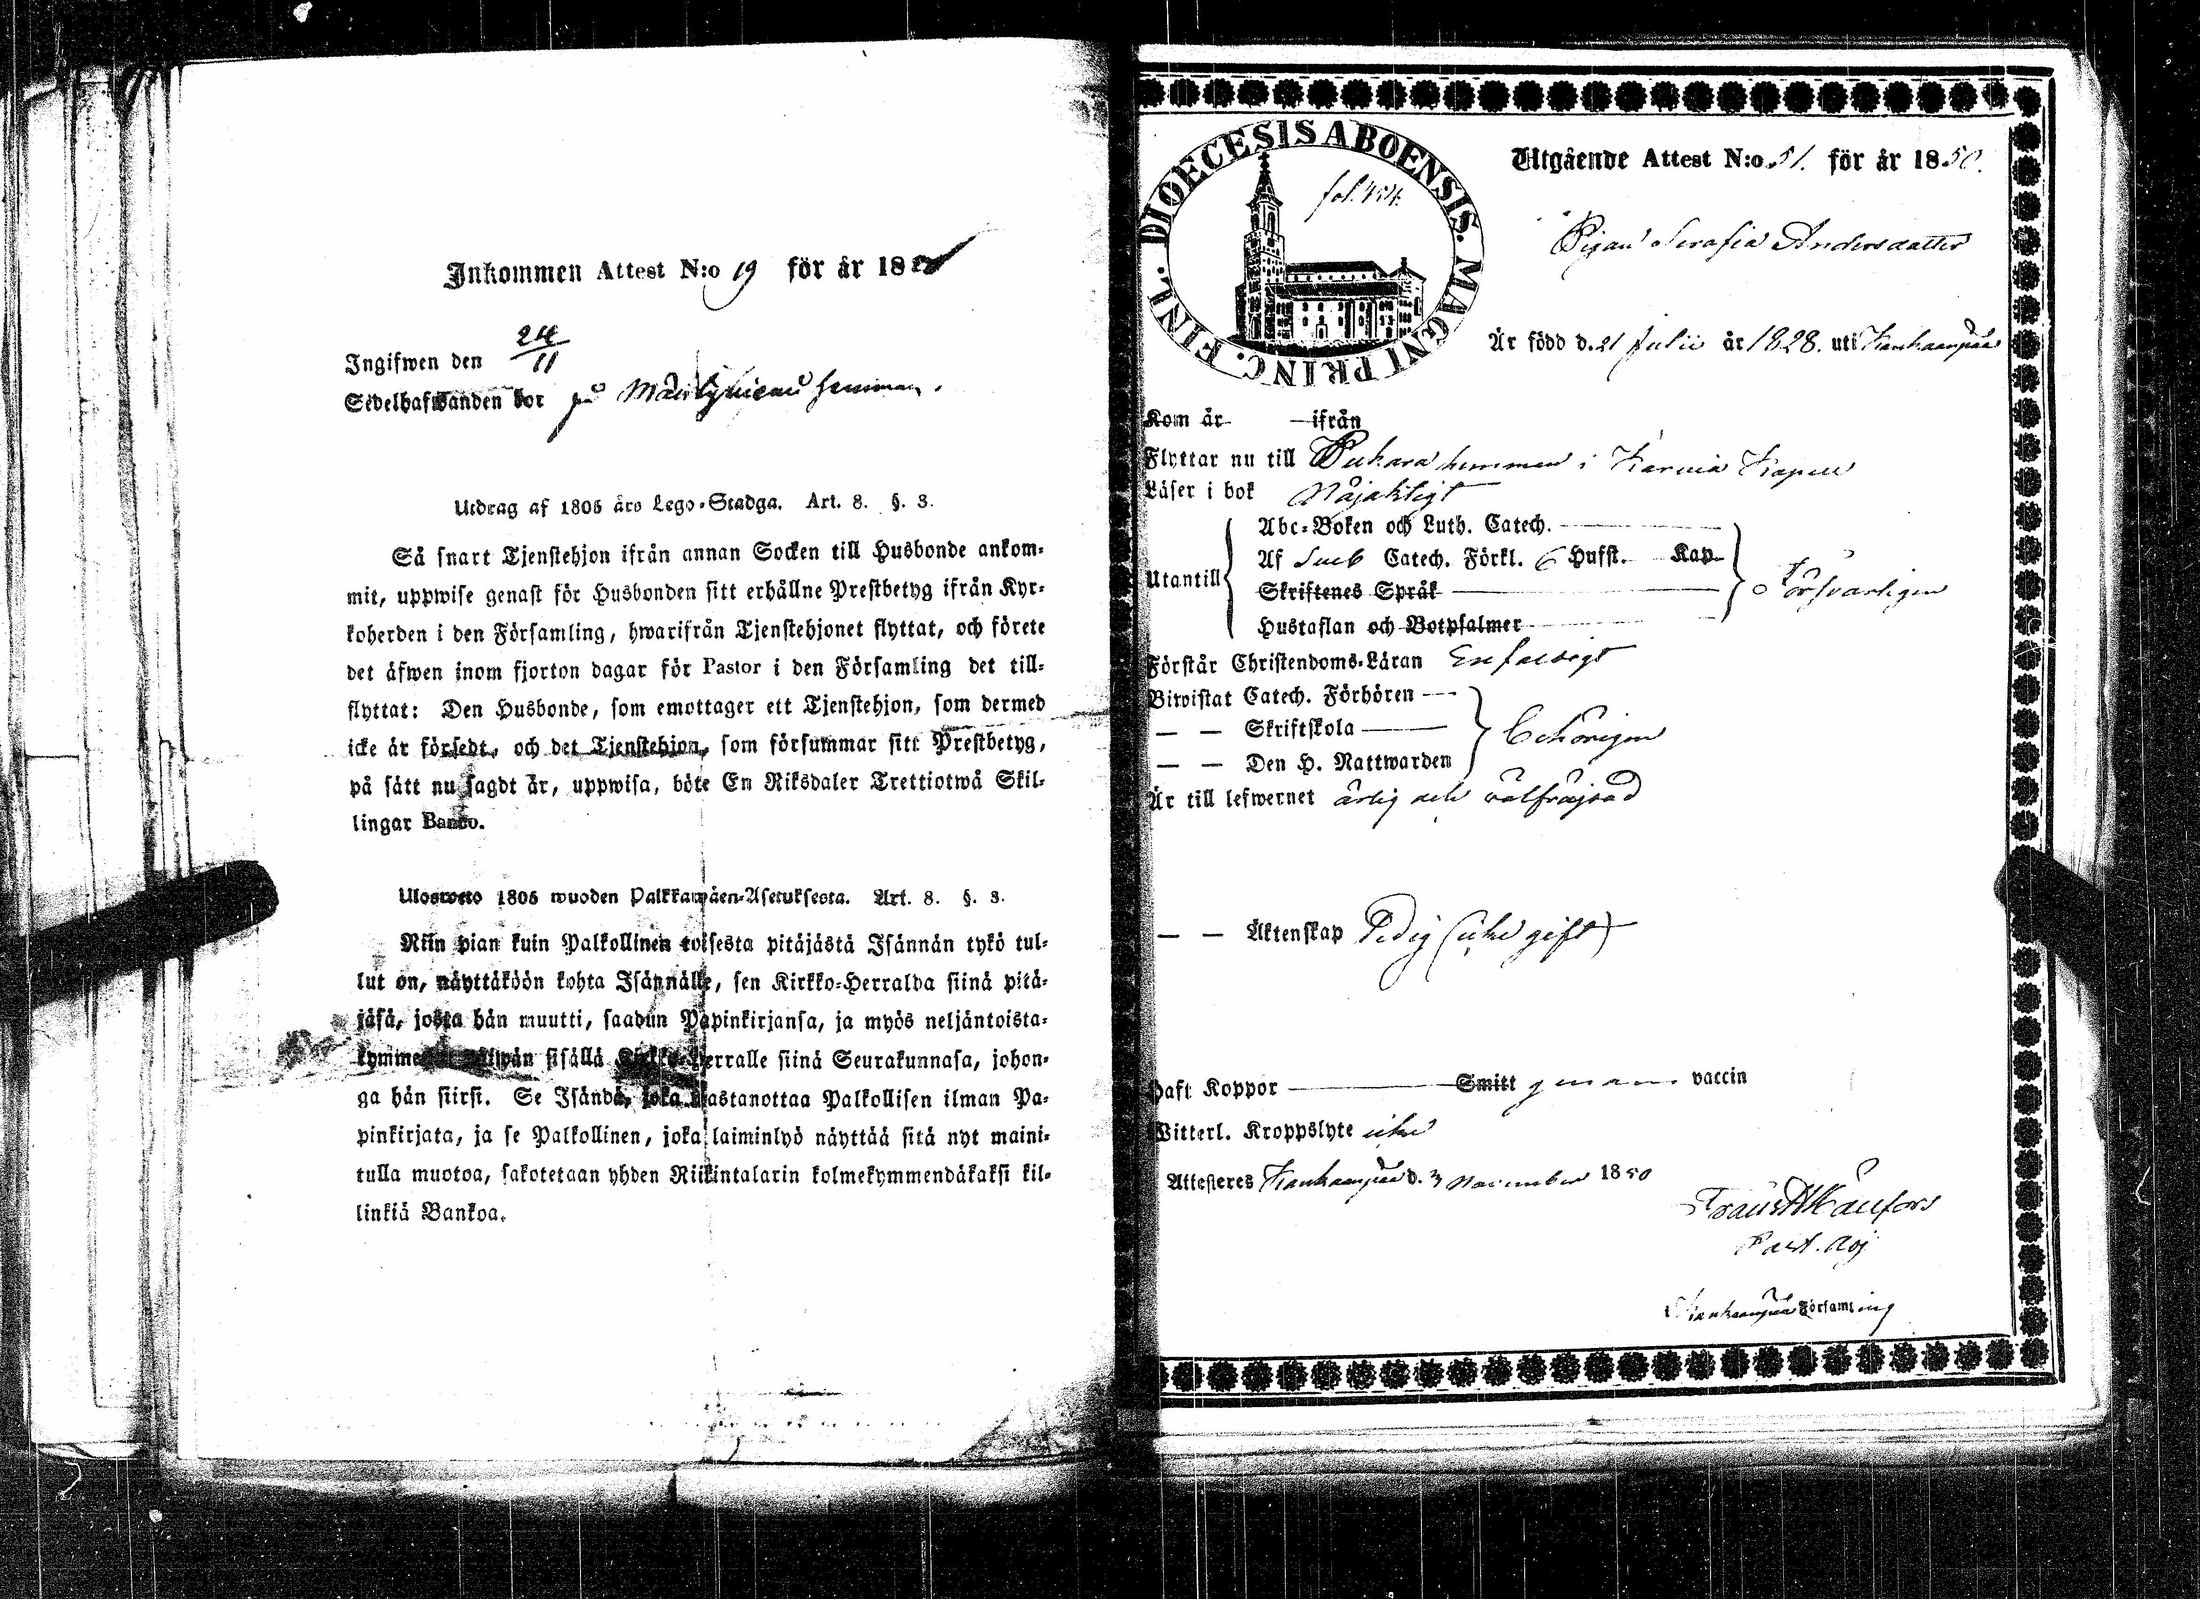 Inkommen Attest N:o 19 för år 18
Ingifwen den 24/11
Sedelhafwanden bor på hemman.
Utdrag af 1805 års Lego-Stadga. Art. 8. §. 3.
Så snart Tjenstehjon ifrån annan Socken till Husbonde ankom-
mit, uppwise genast för Husbonden sitt erhållne Prestbetyg ifrån Kyr-
koherden i den Församling, hwarifrån Tjenstehjonet flyttat, och förete
det äfwen inom fjorton dagar för Pastor i den Församling det till-
flyttat: Den Husbonde, som emottager ett Tjenstehjon, som dermed
icke är försedt, och det Tjenstehjon, som försummar sitt Prestbetyg,
på sätt nu sagdt är, uppwisa, böte En Riksdaler Trettiotwå Skil-
lingar Banco.
Uloswetto 1805 wuoden Palkkawäen-Asetuksesta. Art. 8. §. 3.
Niin pian kuin Palkollinen toisesta pitäjästä Isännän tykö tul-
lut on, näyttäköön kohta Isännälle, sen Kirkko-Herralda siinä pitä-
jäsä, josta hän muutti, saadun Papinkirjansa, ja myös neljäntoista-
kymmenen päiwän sisällä Kirkko-Herralle siinä Seurakunnasa, johon-
ga hän siirsi. Se Isändä, joka wastanottaa Palkollisen ilman Pa-
pinkirjata, ja se Palkollinen, joka laiminlyö näyttää sitä nyt maini-
tulla muotoa, sakotetaan yhden Riikintalarin kolmekymmendäkaksi kil-
linkiä Bankoa.
DIOECESIS ABOENSIS. MAGNI PRINC. FINL.
fol. 454.
Utgående Attest N:o 51. för år 1850.
Pigan Serafia Andersdotter
Är född d. 21 Julii år 1828. uti Kankaanpää
Kom år ifrån
Flyttar nu till Puhara hemman i Karvia Kapell
Läser i bok Nöjaktigt
Abc-Boken och Luth. Catech.
Af Sveb Catech. Förkl. 6 Hufst. Kap
Utantill Försvarligen
Skriftenes Språk
Hustaflan och Botpsalmer
Förstår Christendoms-Läran Enfaldigt
Biwistat Catech. Förhören
— — Skriftskola Behörigen
— — Den H. Nattwarden
Är till lefwernet ärlig och välfräjdad
— — Äktenskap Ledig (icke gift)
Haft Koppor Smitt genom vaccin
Witterl. Kroppslyte icke
Attesteres Kankaanpää d. 3 November 1850
Past. Adj
i Kankaanpää Församling